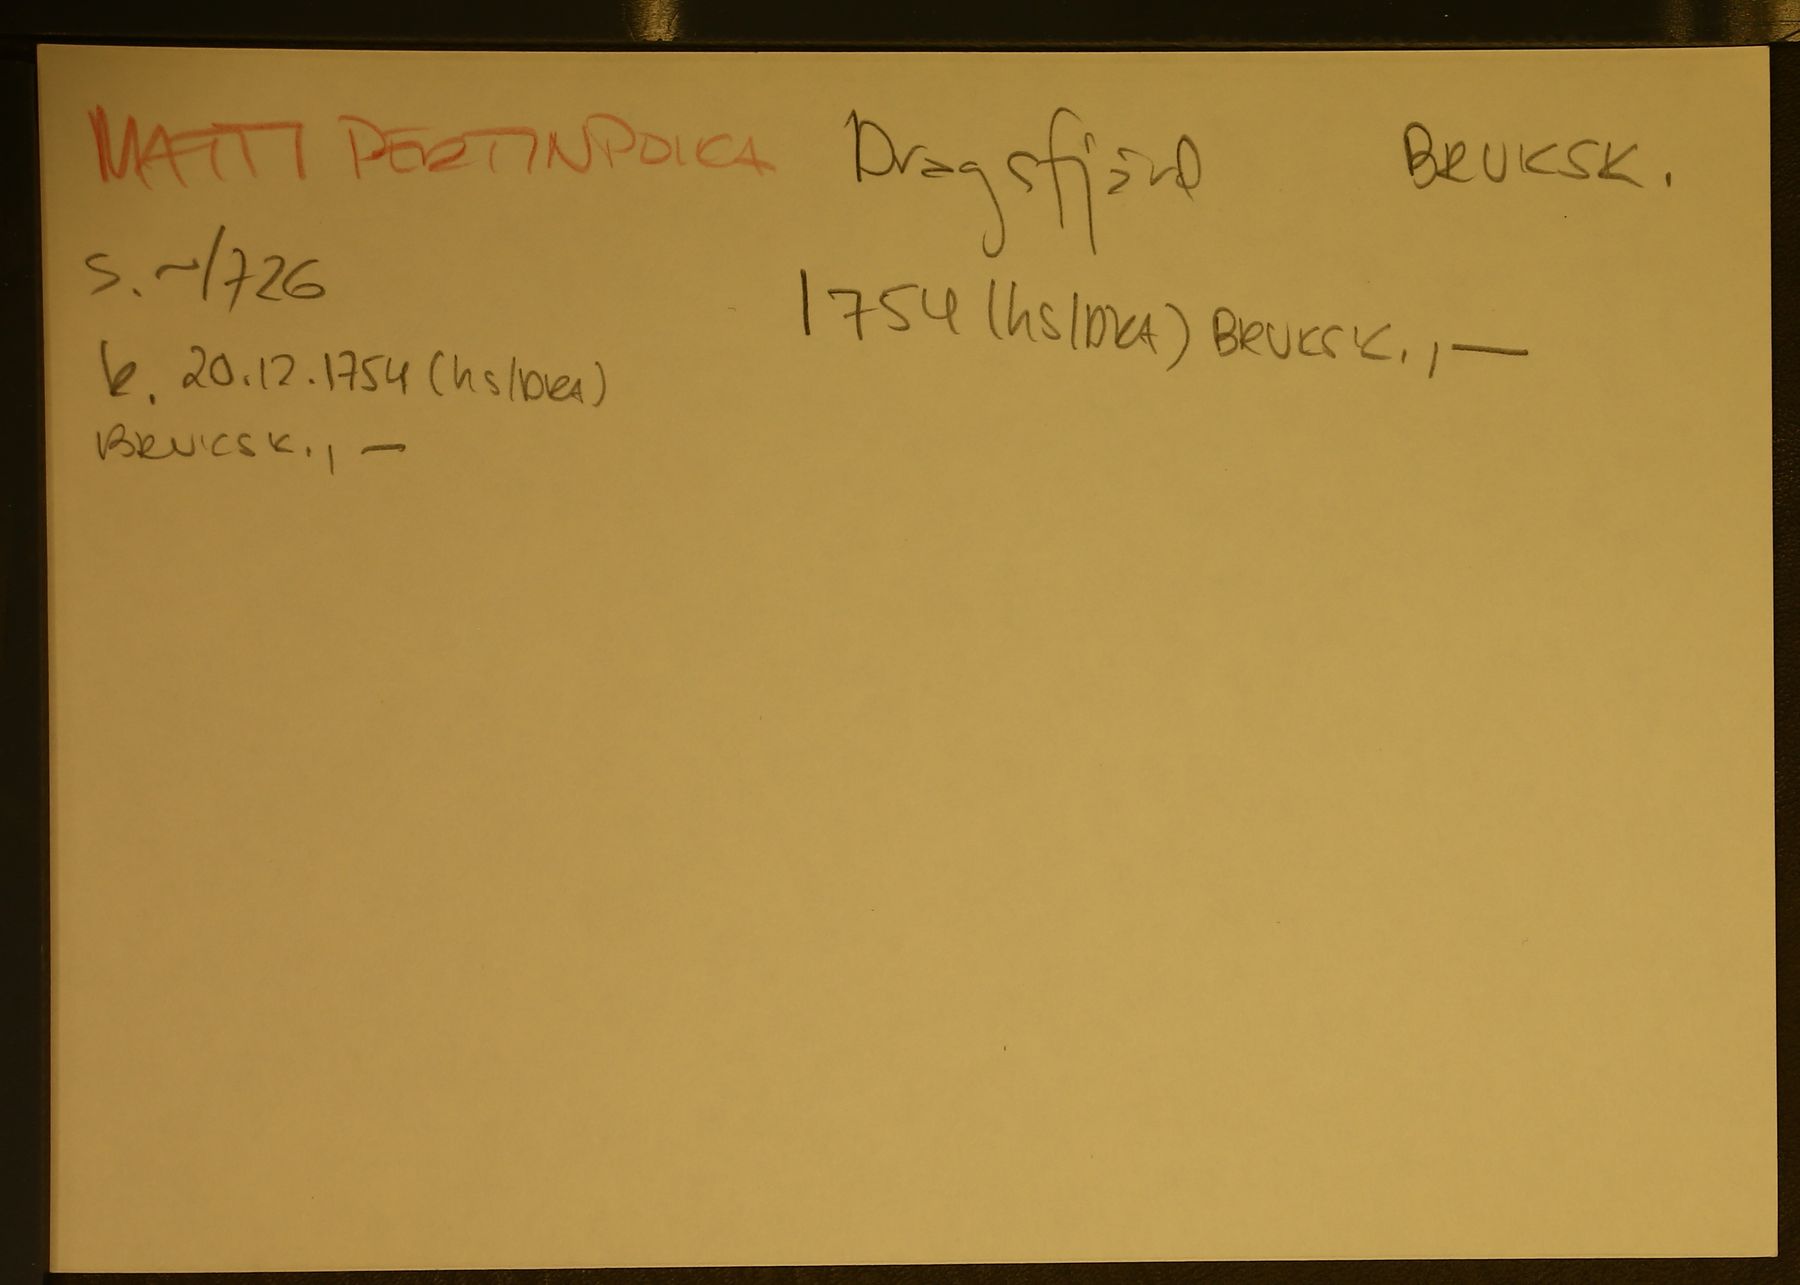 MATTI PERTINPOIKA Dragsfjärd BRUKSK.
s. ~1726
k. 20.12.1754 (hs/DKA)
BRUKSK., —
1754 (hs/DKA) BRUKSK., —